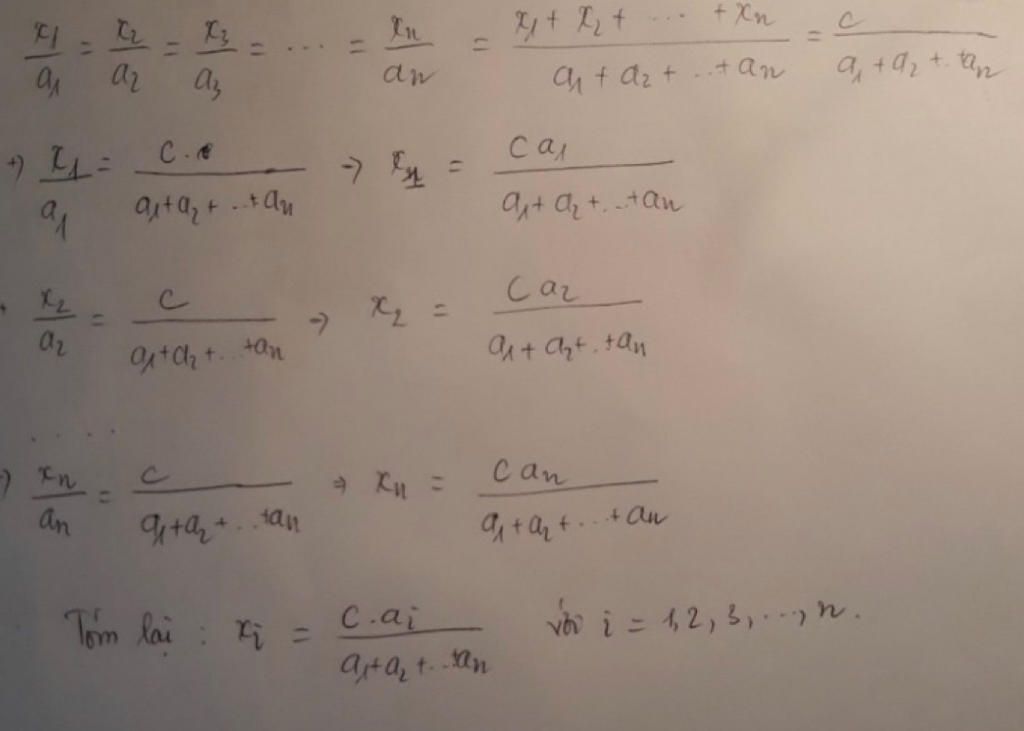 x₁/a₁ = x₂/a₂ = x₃/a₃ = ... = xₙ/aₙ = (x₁ + x₂ + ... + xₙ)/(a₁ + a₂ + .. + aₙ) = c/(a₁ + a₂ + .. + aₙ)
+) x₁/a₁ = c./(a₁+a₂+ ..+aₙ) → x₁ = c a₁/(a₁+ a₂ +. ..+aₙ)
+ x₂/a₂ = c/(a₁+a₂+ ...+aₙ) → x₂ = c a₂/(a₁ + a₂+ . .+aₙ)
. . . .
+) xₙ/aₙ = c/(a₁+a₂ + ..+aₙ) ⇒ xₙ = c aₙ/(a₁+a₂ + ... + aₙ)
Tóm lại : xᵢ = c.aᵢ/(a₁+a₂ + ..+aₙ) với i = 1,2, 3, ..., n.